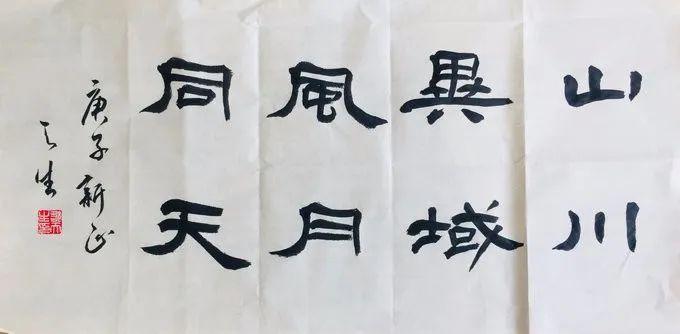 山川
異域
風月
同天
庚子新正
生